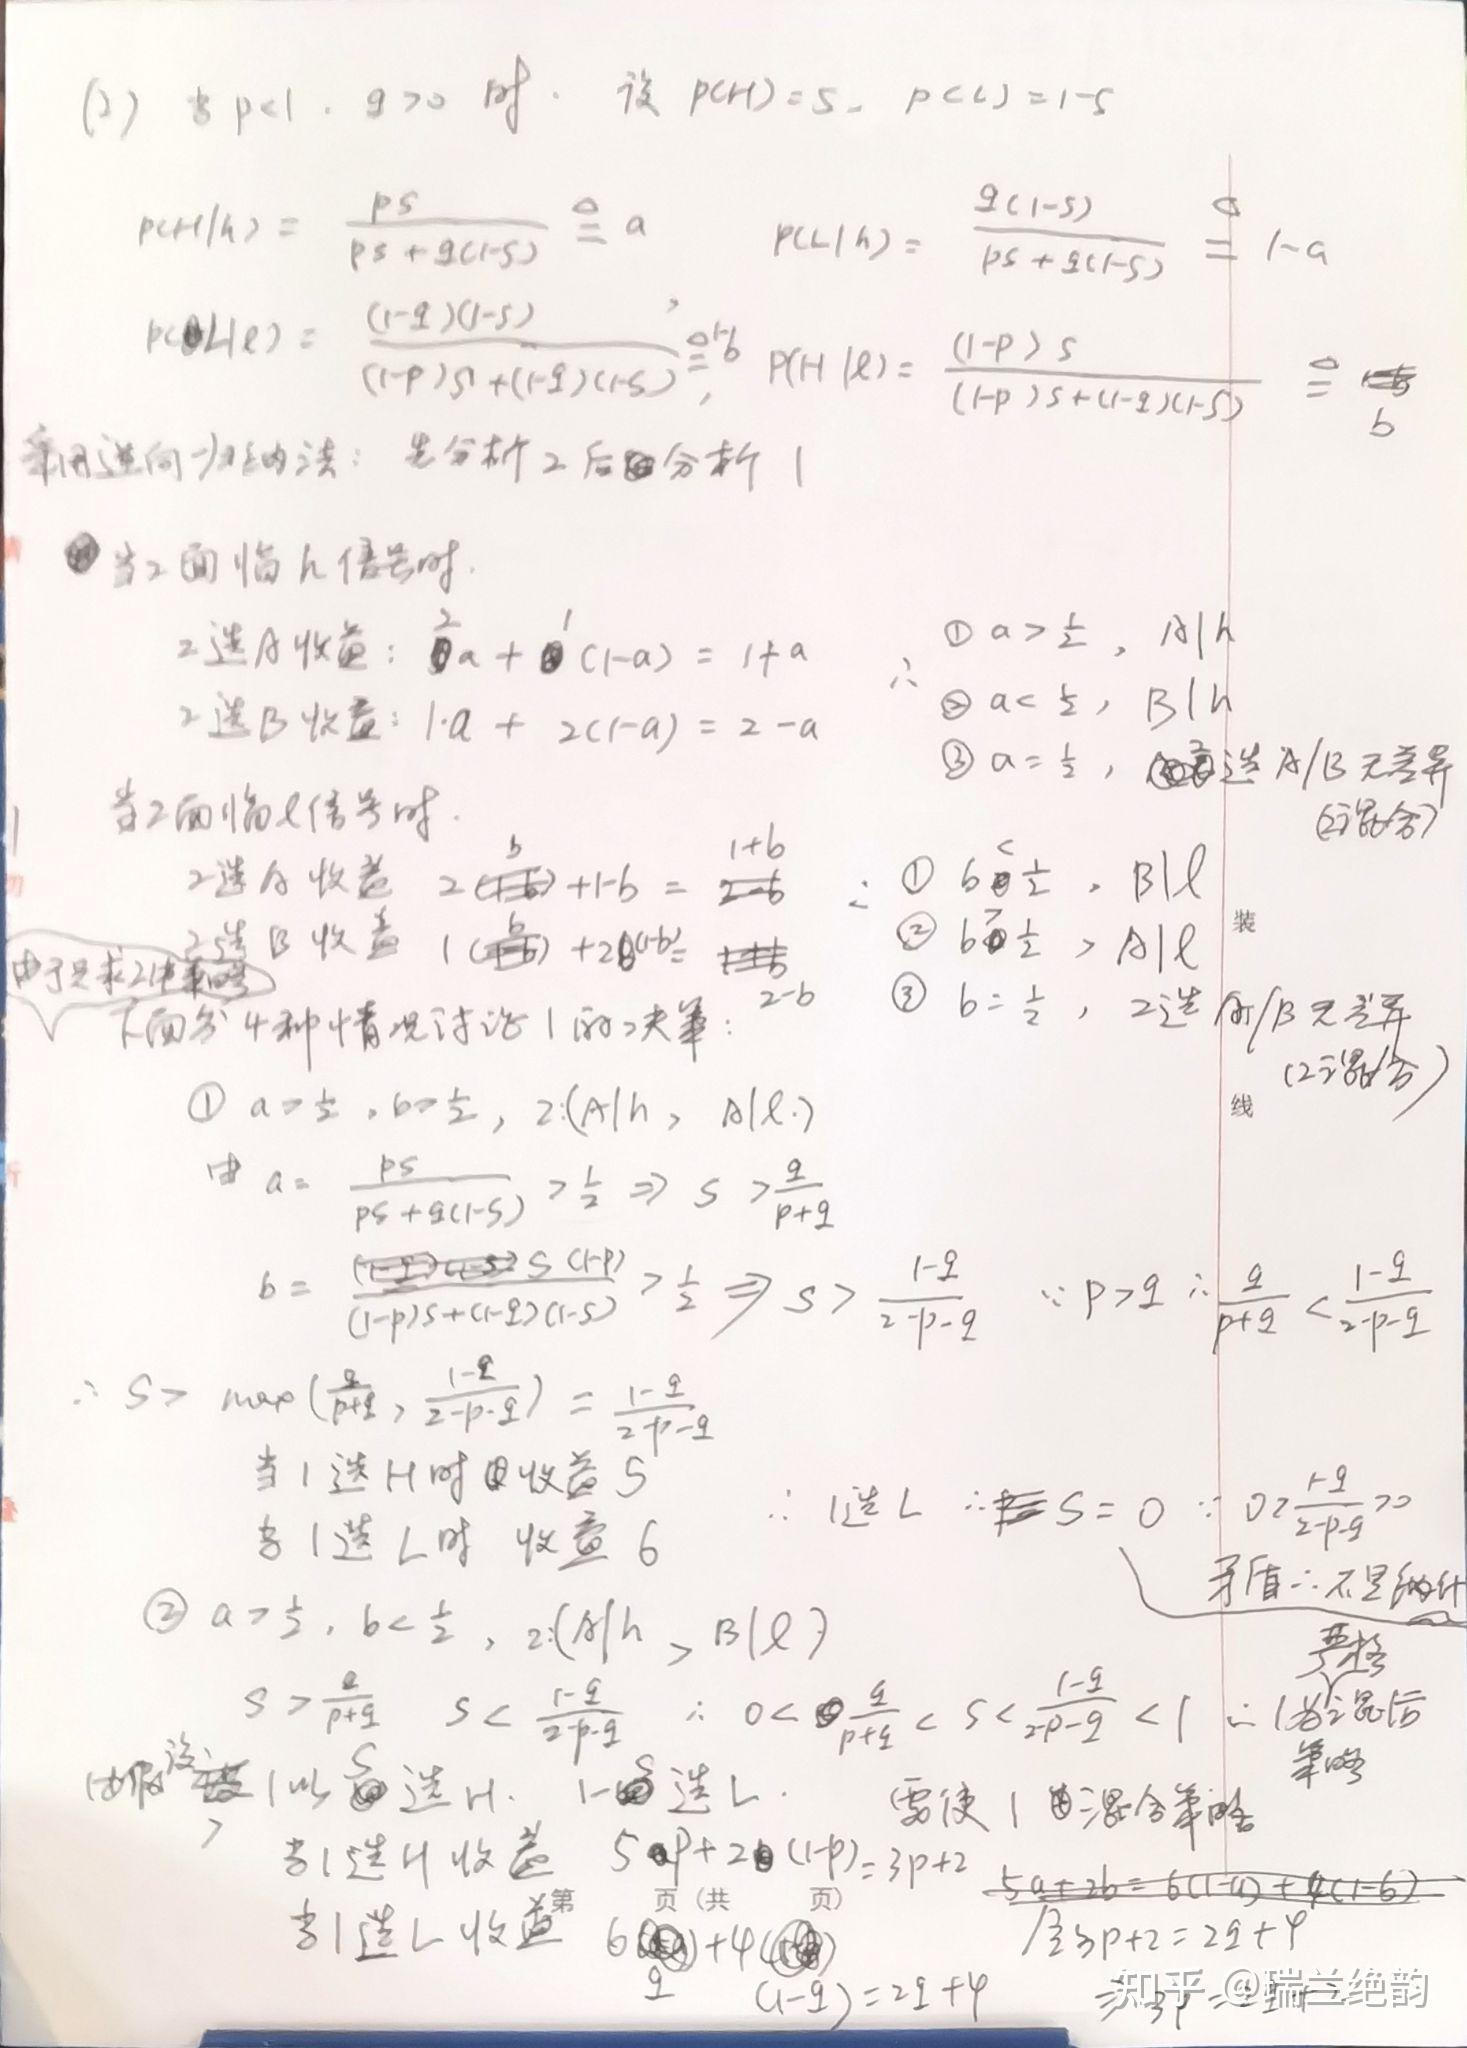 (2) 当 p<1, q>0 时. 设 p(H)=s, p(L)=1-s
p(H|h) = ps / (ps+q(1-s)) ≜ a  p(L|h) = q(1-s) / (ps+q(1-s)) ≜ 1-a
p(L|l) = (1-q)(1-s) / ((1-p)s+(1-q)(1-s)) ≜ 1-b, p(H|l) = (1-p)s / ((1-p)s+(1-q)(1-s)) ≜ b
采用逆向归纳法: 先分析2后分析1
当2面临h信号时.
2选A收益: 2a + 1(1-a) = 1+a
2选B收益: 1·a + 2(1-a) = 2-a
∴ ① a>1/2, A|h
② a<1/2, B|h
③ a=1/2, 2选A/B无差异
(混合)
当2面临l信号时.
2选A收益 2b+1-b = 1+b
2选B收益 1b+2(1-b)= 2-b
∴ ① b<1/2, B|l
② b>1/2, A|l
③ b=1/2, 2选A/B无差异
(混合)
装
线
下面分4种情况讨论1的决策:
① a>1/2, b>1/2, 2:(A|h, A|l)
由 a = ps / (ps+q(1-s)) > 1/2 ⇒ s > q/(p+q)
b = s(1-p) / ((1-p)s+(1-q)(1-s)) > 1/2 ⇒ s > (1-q)/(2-p-q) ∵ p>q ∴ q/(p+q) < (1-q)/(2-p-q)
∴ s > max(q/(p+q), (1-q)/(2-p-q)) = (1-q)/(2-p-q)
当1选H时收益5
当1选L时 收益6
∴ 1选L ∴ s=0 ∵ 0>(1-q)/(2-p-q)>0
矛盾∴不是纳什
② a>1/2, b<1/2, 2:(A|h, B|l)
s > q/(p+q) s < (1-q)/(2-p-q) ∴ 0 < q/(p+q) < s < (1-q)/(2-p-q) < 1 ∴ 1为严格混合
策略
假设1以s选H. 1-s选L. 需使1混合策略
当1选H收益 5p+2(1-p)=3p+2
第 页(共 页)
当1选L收益 6q+4(1-q)=2q+4
3p+2=2q+4
知乎 @瑞兰绝韵